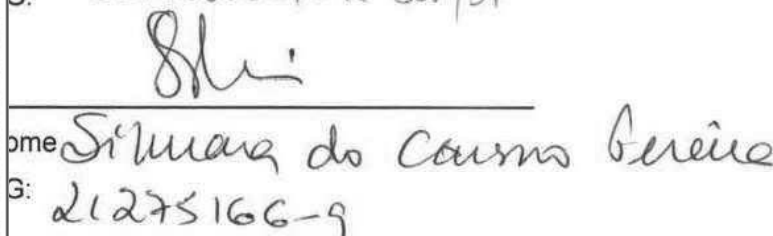 G:
ome Silmara do Carmo Pereira
G: 21275166-9